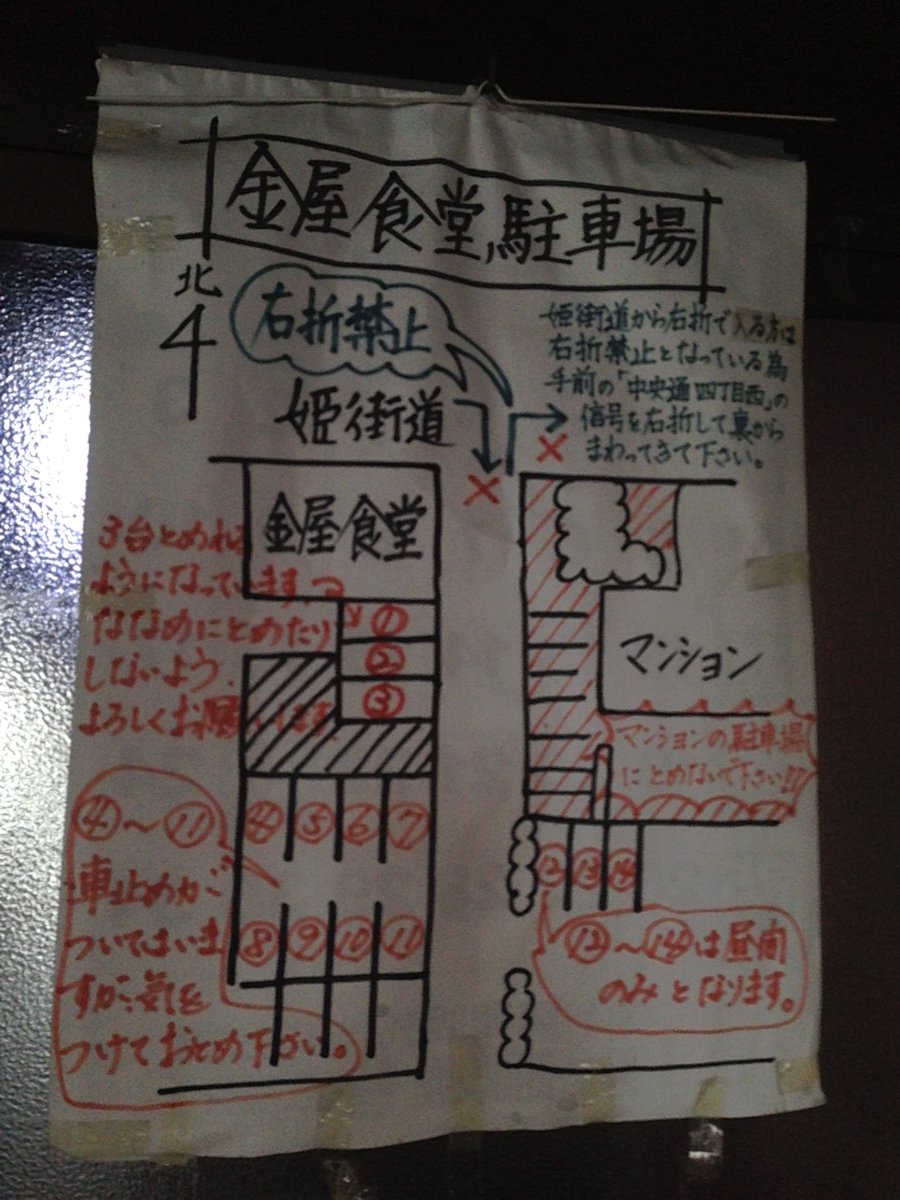 金屋食堂駐車場
北
右折禁止
姫街道から右折で入る方は
右折禁止となっている為
手前の「中央通四丁目西」の
信号を右折して裏から
まわってきて下さい。
姫街道
金屋食堂
3台とめれる
ようになっています、
ななめにとめたり
しないよう、
よろしくお願いします
①
②
③
マンション
マンションの駐車場
にとめないで下さい!!!
④ ⑤ ⑥ ⑦
⑧ ⑨ ⑩ ⑪
④〜⑪
車止めが
ついてはいま
すが、気を
つけておとめ下さい。
⑫ ⑬ ⑭
⑫〜⑭は昼間
のみとなります。